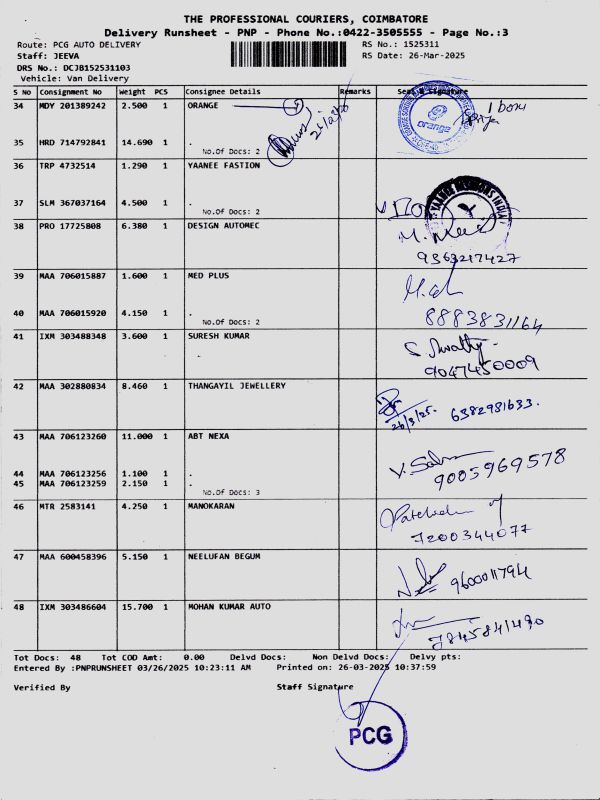 THE PROFESSIONAL COURIERS, COIMBATORE
Delivery Runsheet - PNP - Phone No.:0422-3505555 - Page No.:3
Route: PCG AUTO DELIVERY RS No.: 1525311
Staff: JEEVA RS Date: 26-Mar-2025
DRS No.: DCJB152531103
Vehicle: Van Delivery
S No Consignment No Weight PCS Consignee Details Remarks Seal & Signature
34 MDY 201389242 2.500 1 ORANGE 1 box
orange
35 HRD 714792841 14.690 1 .
No.Of Docs: 2
36 TRP 4732514 1.290 1 YAANEE FASTION
37 SLM 367037164 4.500 1 .
No.Of Docs: 2
38 PRO 17725808 6.380 1 DESIGN AUTOMEC
9363217427
39 MAA 706015887 1.600 1 MED PLUS
40 MAA 706015920 4.150 1 . 8883831164
No.Of Docs: 2
41 IXM 303488348 3.600 1 SURESH KUMAR
9047450009
42 MAA 302880834 8.460 1 THANGAYIL JEWELLERY
26/3/25. 6382981633.
43 MAA 706123260 11.000 1 ABT NEXA
44 MAA 706123256 1.100 1 . 9005969578
45 MAA 706123259 2.150 1 .
No.Of Docs: 3
46 MTR 2583141 4.250 1 MANOKARAN
7200344077
47 MAA 600458396 5.150 1 NEELUFAN BEGUM
9600011794
48 IXM 303486604 15.700 1 MOHAN KUMAR AUTO
7845841490
Tot Docs: 48 Tot COD Amt: 0.00 Delvd Docs: Non Delvd Docs: Delvy pts:
Entered By :PNPRUNSHEET 03/26/2025 10:23:11 AM Printed on: 26-03-2025 10:37:59
Verified By Staff Signature
PCG